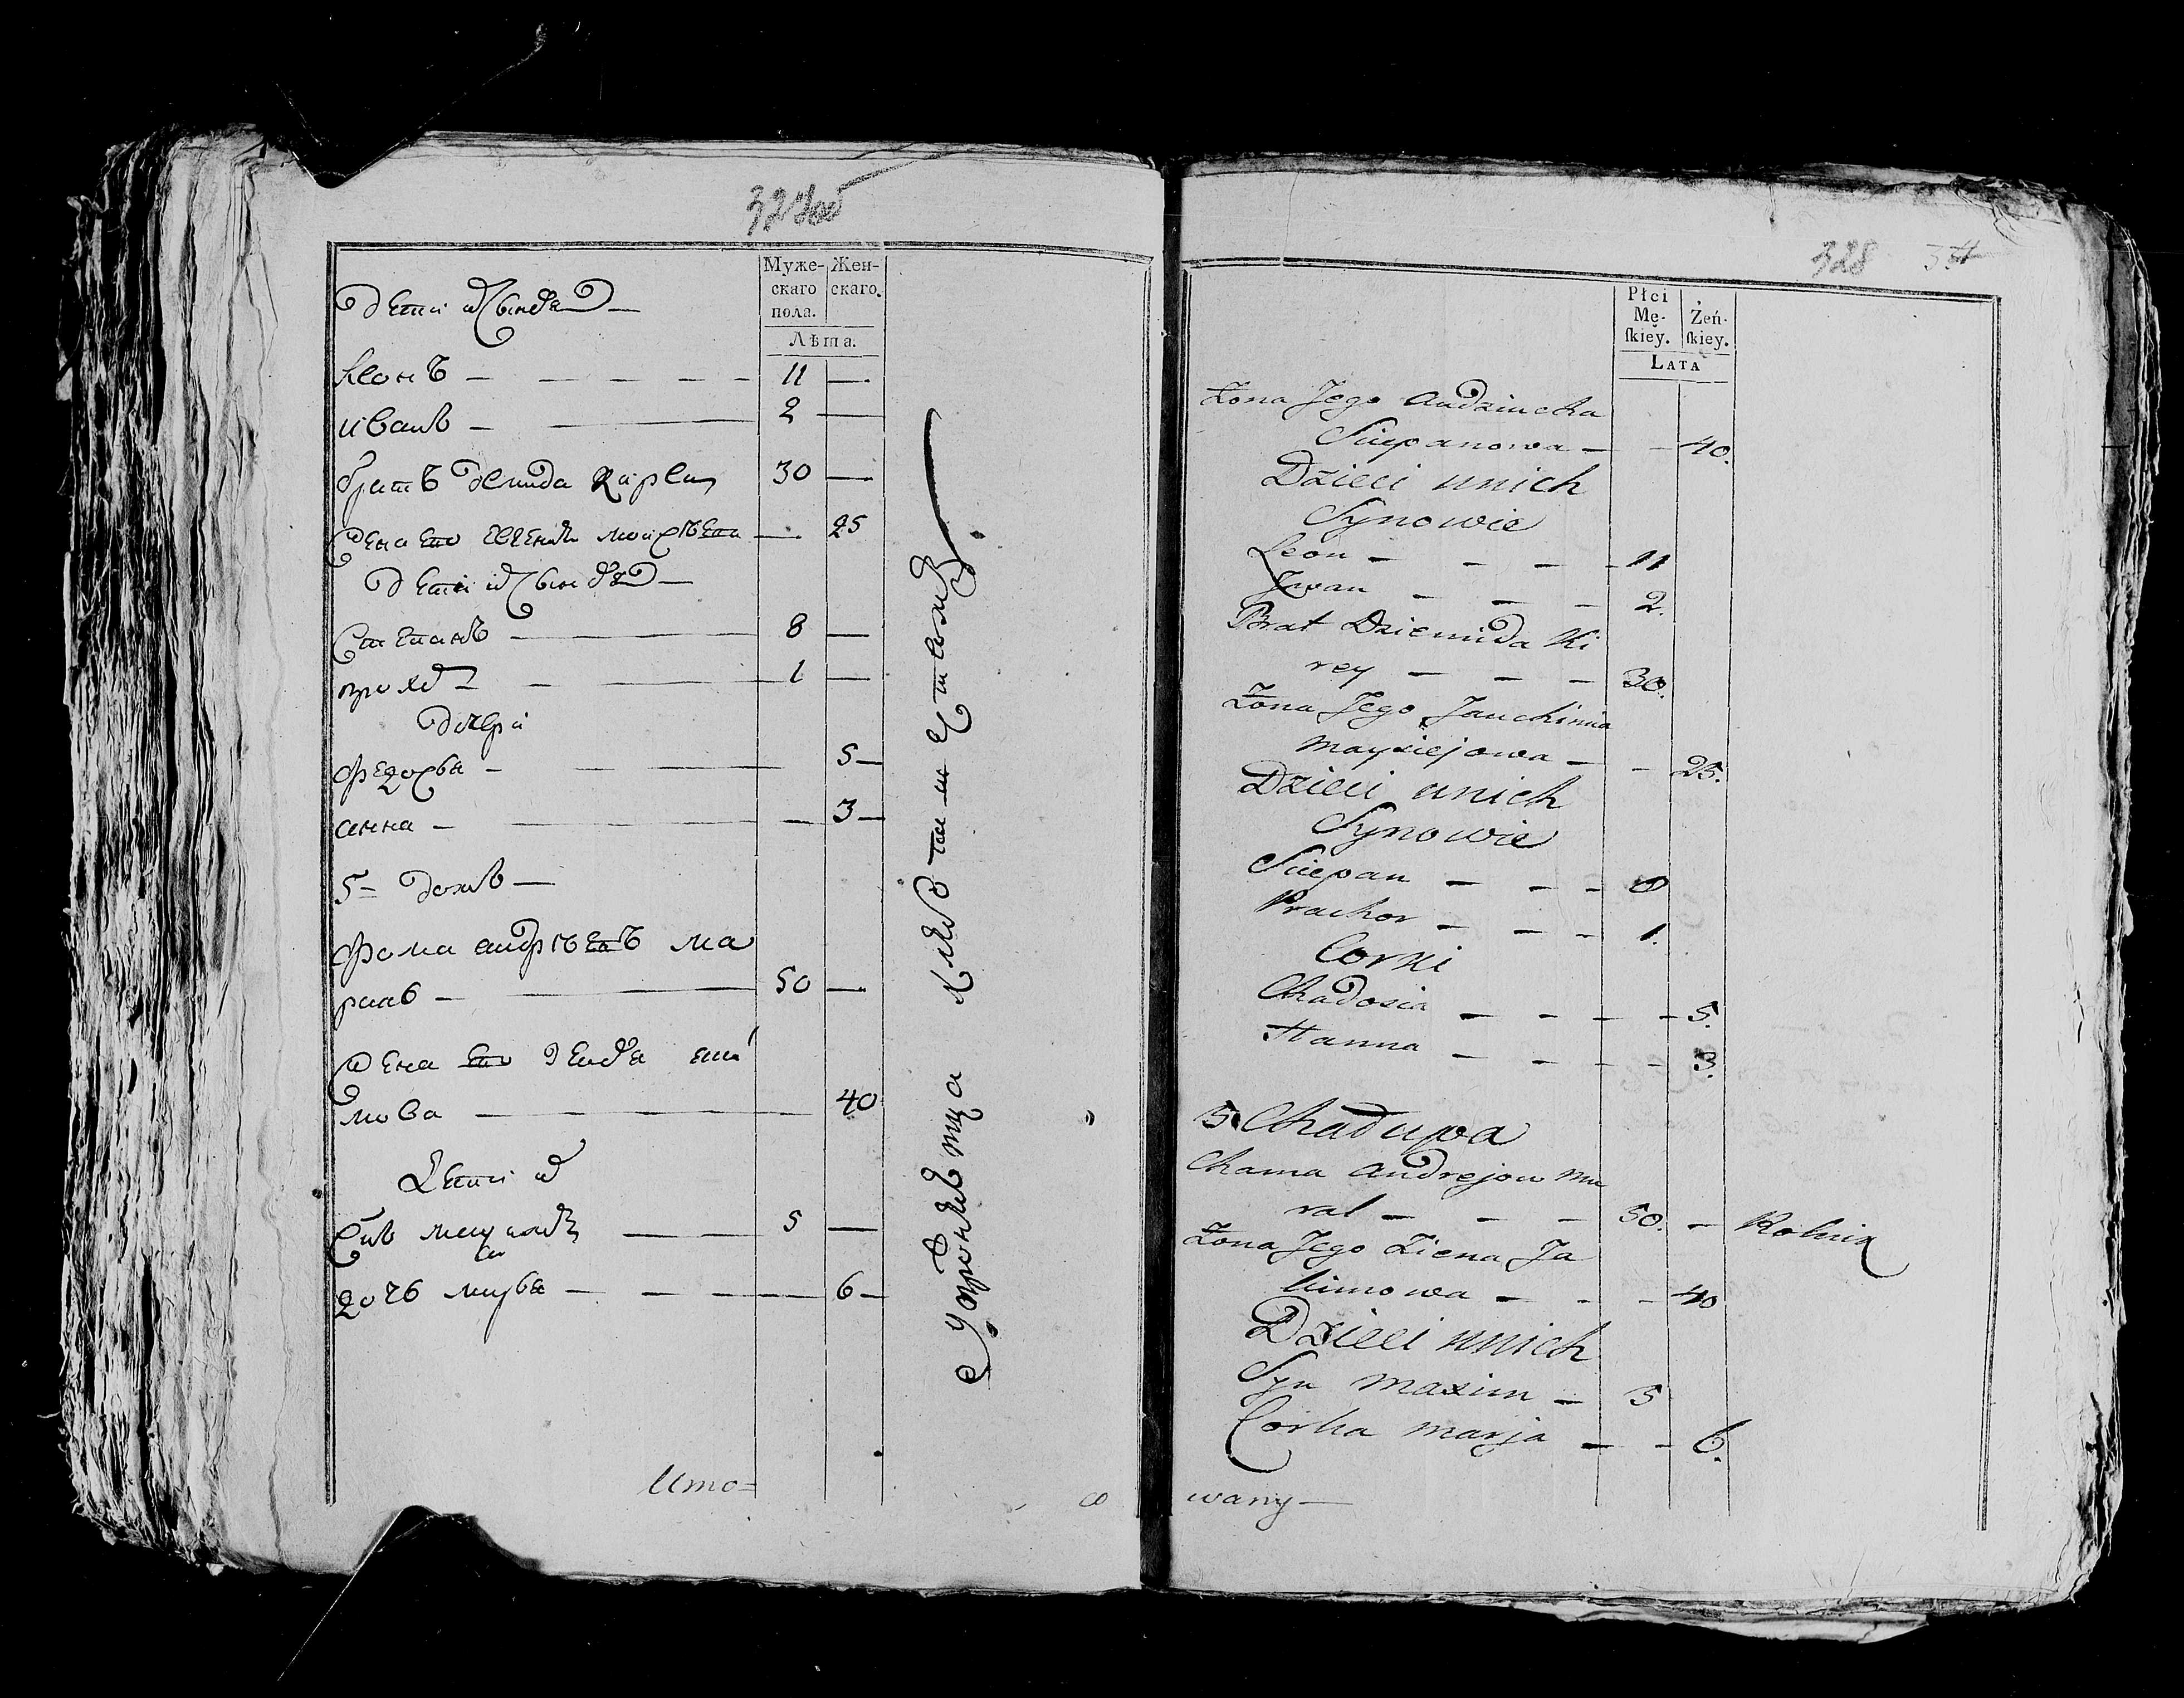 327об
Муже-
скаго
пола.
Жен-
скаго.
Лѣта.
дети их сыновя —
Леонъ — 11 —
иванъ — 2 —
братъ демида кирей 30 —
жена его — 25
дети их сыновя —
Степанъ — 8 —
прохоръ — 1 —
дочери
федосья — 5 —
анна — 3 —
5 = домъ —
фома андрѣевъ му
раль — 50 —
жена его зеновя яки
мова — 40
Дети их
Сынъ максимъ 5 —
дочь марья — 6 —
Ито=
328
Płci
Mę-
skiey.
Żeń-
skiey.
LATA
Żona Jego Audziucha
Sciepanowa — — 40.
Dzieci unich
Synowie
Leon — — — 11
Jwan — — — 2.
Brat Dziemida Ki
rey — — — 30.
Żona Jego Jauchimia
Mayziejowa — — 25.
Dzieci unich
Synowie
Sciepan — — — 8
Prachor — — — 1.
Corki
Chadosia — — — — 5.
Hanna — — — — 3.
5. Chadupa
Chama Andrejow Mu
ral — — — 50. — Rolnik
Żona Jego Ziena Ja
kimowa — — — 40
Dzieci unich
Syn Maxim — 5
Corka Marja — — 6.
wany —